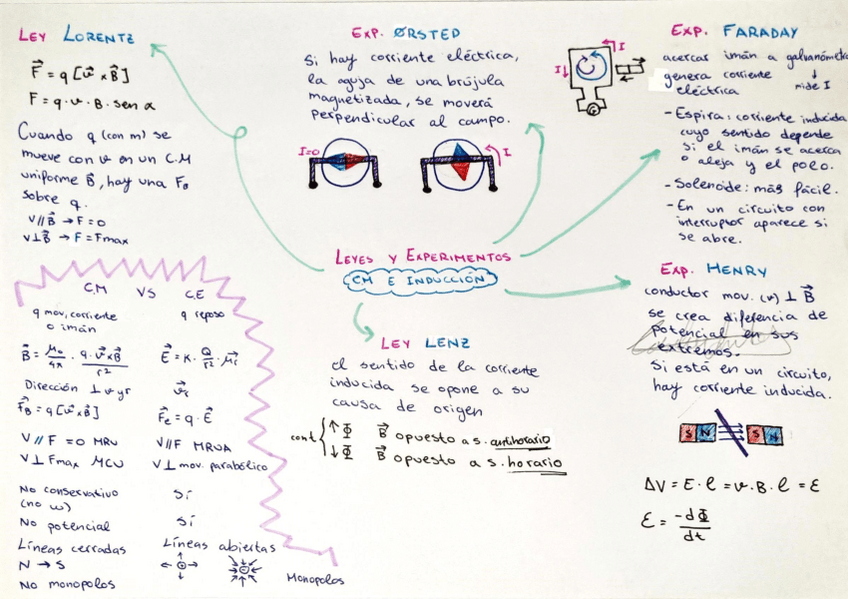 LEY LORENTZ
F⃗ = q [v⃗ × B⃗]
F = q · v · B · sen α
Cuando q (con m) se
mueve con v en un C.M
uniforme B⃗, hay una F_B
sobre q.
V // B⃗ → F = 0
V ⊥ B⃗ → F = Fmax
EXP. ØRSTED
Si hay corriente eléctrica,
la aguja de una brújula
magnetizada, se moverá
perpendicular al campo.
I=0
I
EXP. FARADAY
I
I
acercar imán a galvanómetro
genera corriente
eléctrica
mide I
G
- Espira: corriente inducida
cuyo sentido depende
si el imán se acerca
o aleja y el polo.
- Solenoide: más fácil.
- En un circuito con
interruptor aparece si
se abre.
LEYES Y EXPERIMENTOS
CM E INDUCCIÓN
EXP. HENRY
conductor mov. (v) ⊥ B⃗
se crea diferencia de
potencial en sus
extremos.
Si está en un circuito,
hay corriente inducida.
S N S N
ΔV = E · l = v · B · l = ε
ε = -dΦ / dt
LEY LENZ
el sentido de la corriente
inducida se opone a su
causa de origen
cont { ↑ Φ B⃗ opuesto a s. antihorario
↓ Φ B⃗ opuesto a s. horario
C.M VS C.E
q mov, corriente q reposo
o imán
B⃗ = μ₀/4π · q · v⃗ × B⃗ / r² E⃗ = K · Q/r² · μ⃗r
Dirección ⊥ v y r v⃗r
F⃗_B = q [v⃗ × B⃗] F⃗e = q · E⃗
V // F = 0 MRU V // F MRUA
V ⊥ Fmax MCU V ⊥ mov. parabólico
No conservativo Sí
(no w)
No potencial Sí
Líneas cerradas Líneas abiertas
N → S
No monopolos Monopolos